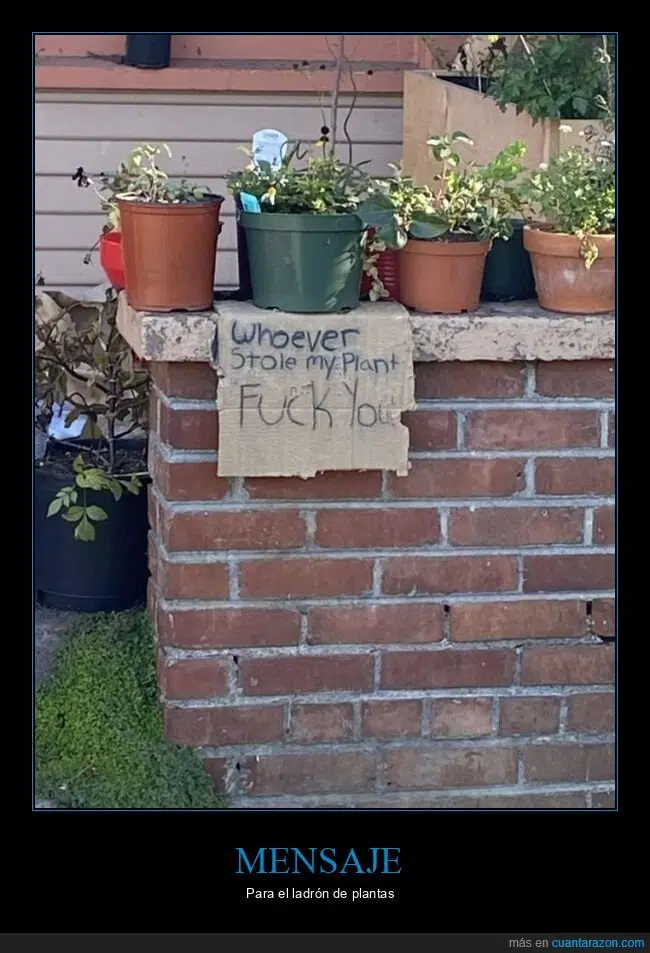 Whoever
Stole my Plant
FUCK You
MENSAJE
Para el ladrón de plantas
más en cuantarazon.com